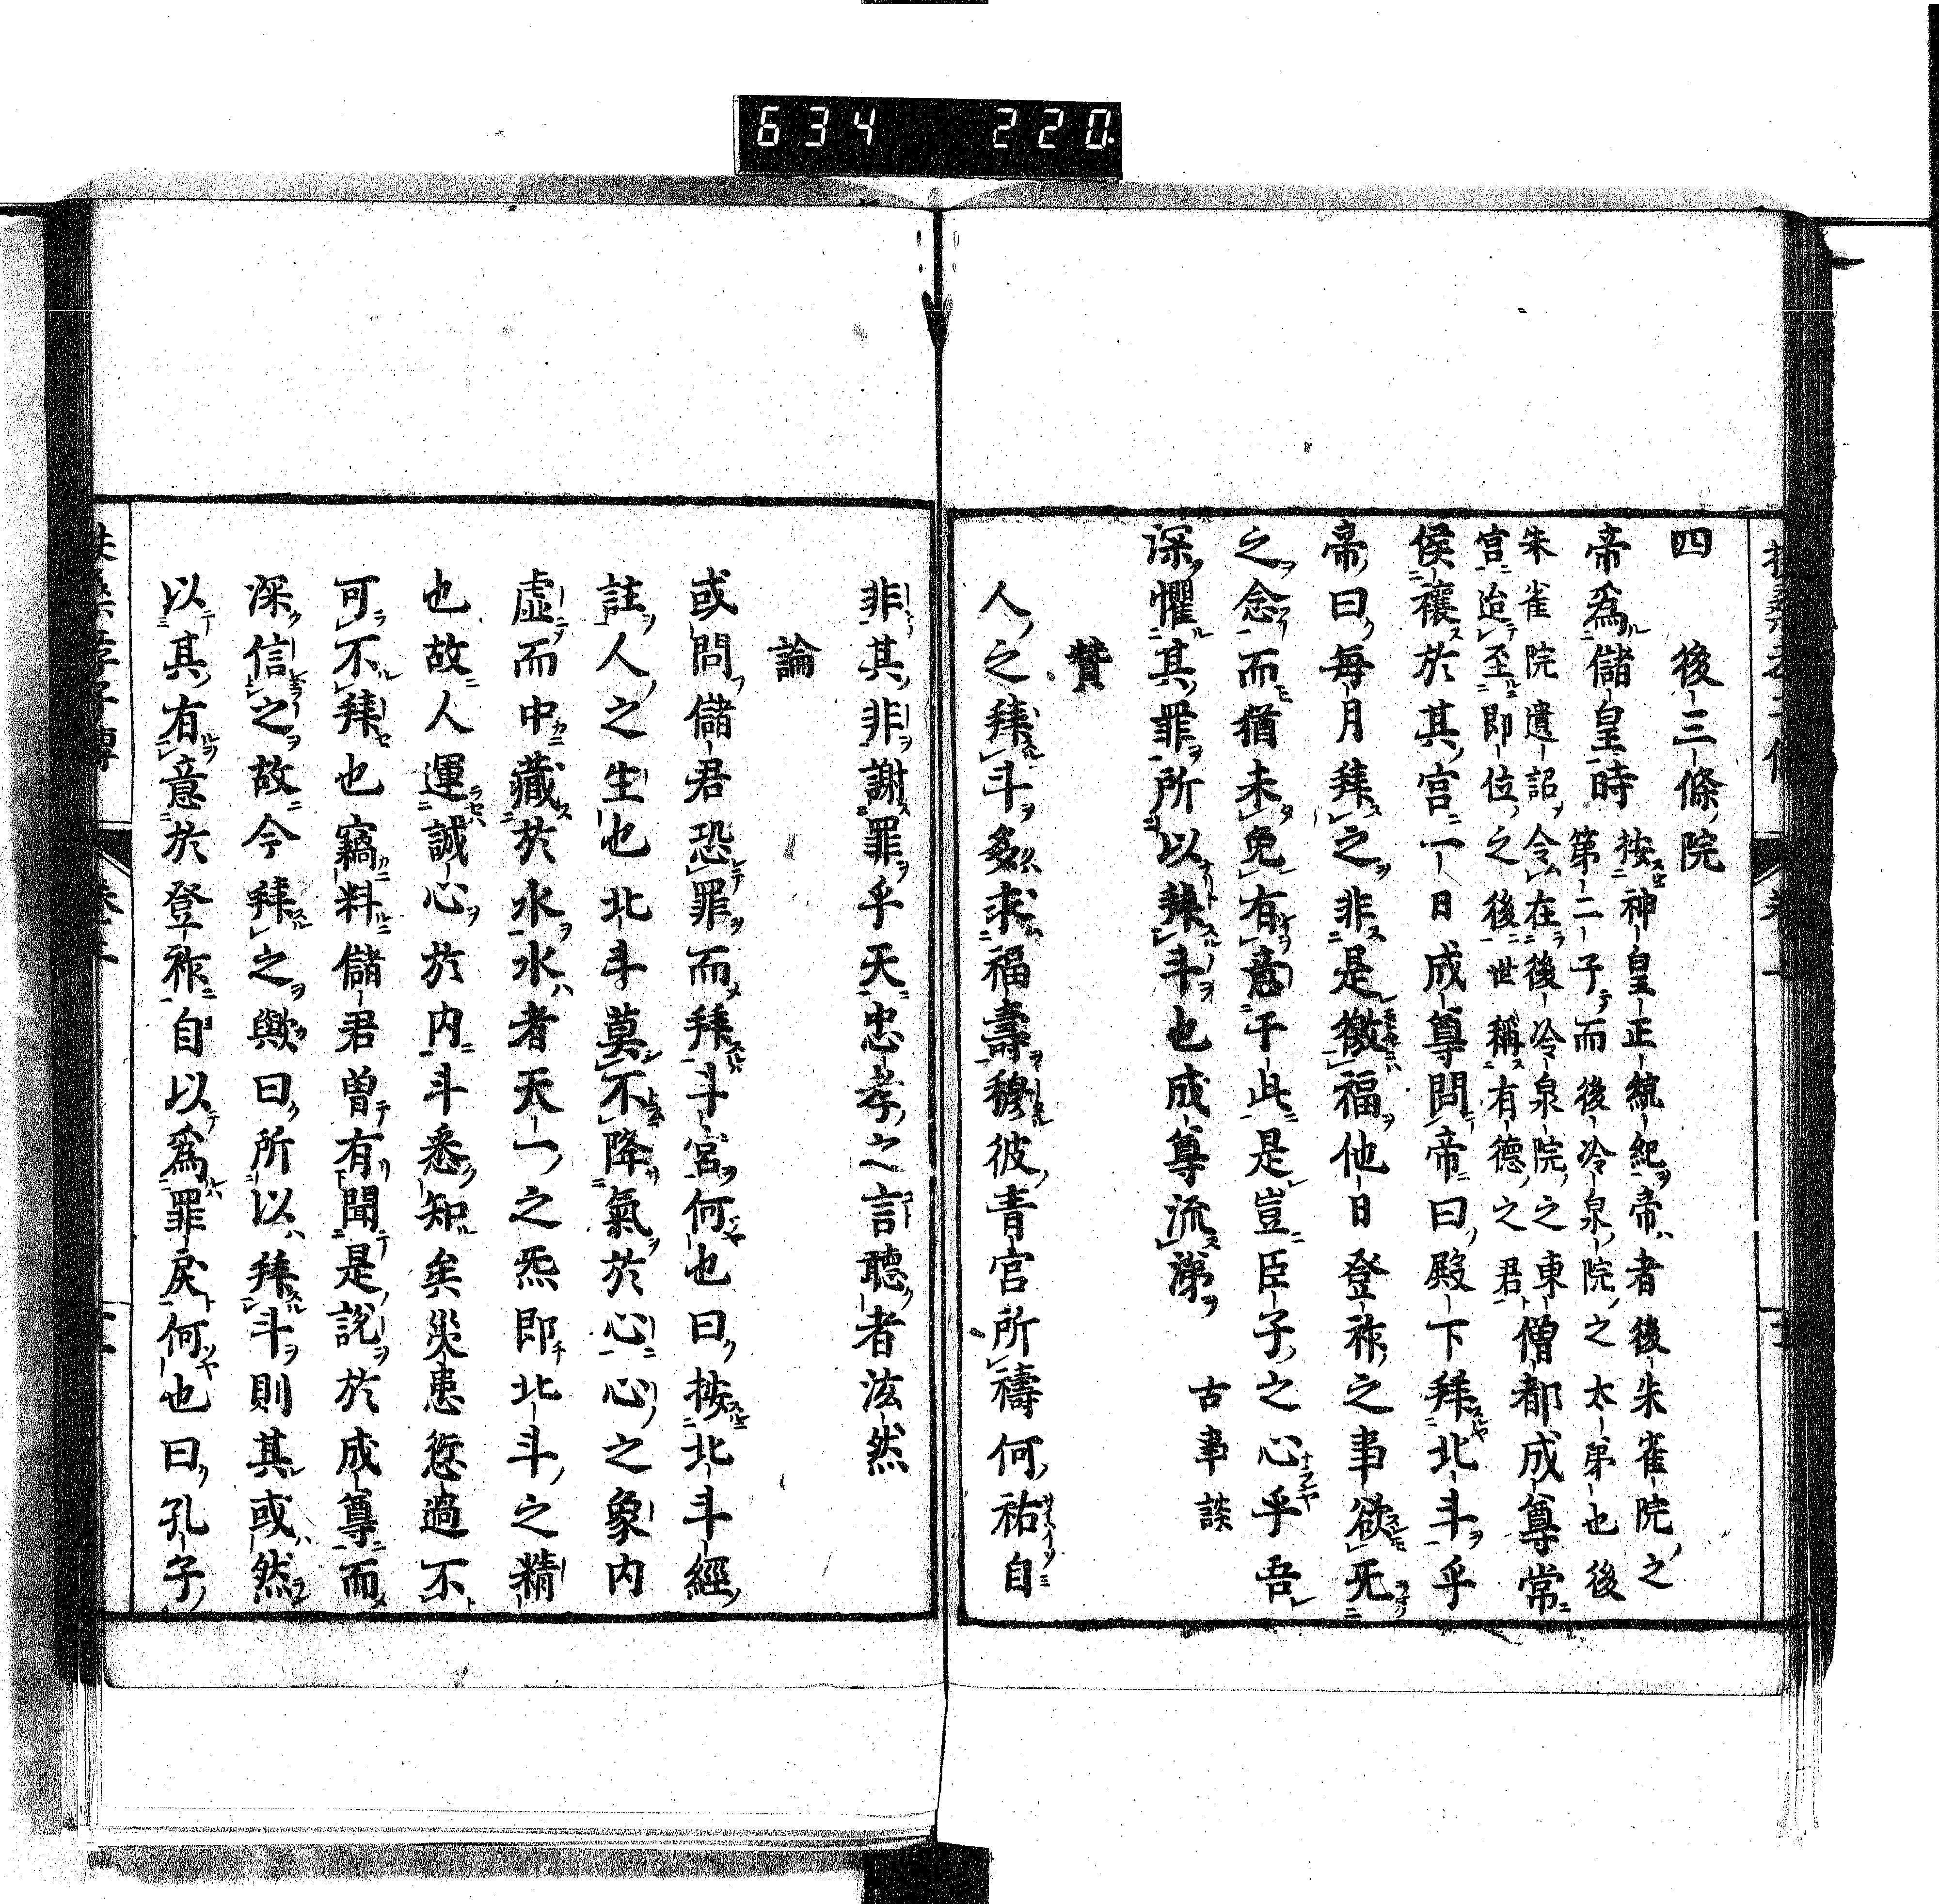 634 220
四 後三條院
帝爲儲皇時
按神皇正統紀帝者後朱雀院之
第二子而後冷泉院之太弟也後
朱雀院遺詔令在後冷泉院之東
宮迨至即位之後世稱有德之君
僧都成尊常
侯禳於其宮一日成尊問帝曰殿下拜北斗乎
帝曰每月拜之非是徼福他日登祚之事欲死
之念而猶未免有意于此是豈臣子之心乎吾
深懼其罪所以拜斗也成尊流涕 古事談
贊
人之拜斗多求福壽穆彼青宮所禱何祐自
非其非謝罪乎天忠孝之言聽者泫然
論
或問儲君恐罪而拜斗宮何也曰按北斗經
註人之生也北斗莫不降氣於心心之象内
虛而中藏於水水者天一之炁即北斗之精
也故人運誠心於内斗悉知矣災患愆過不
可不拜也竊料儲君曽有聞是説於成尊而
深信之故今拜之歟曰所以拜斗則其或然
以其有意於登祚自以爲罪戾何也曰孔子